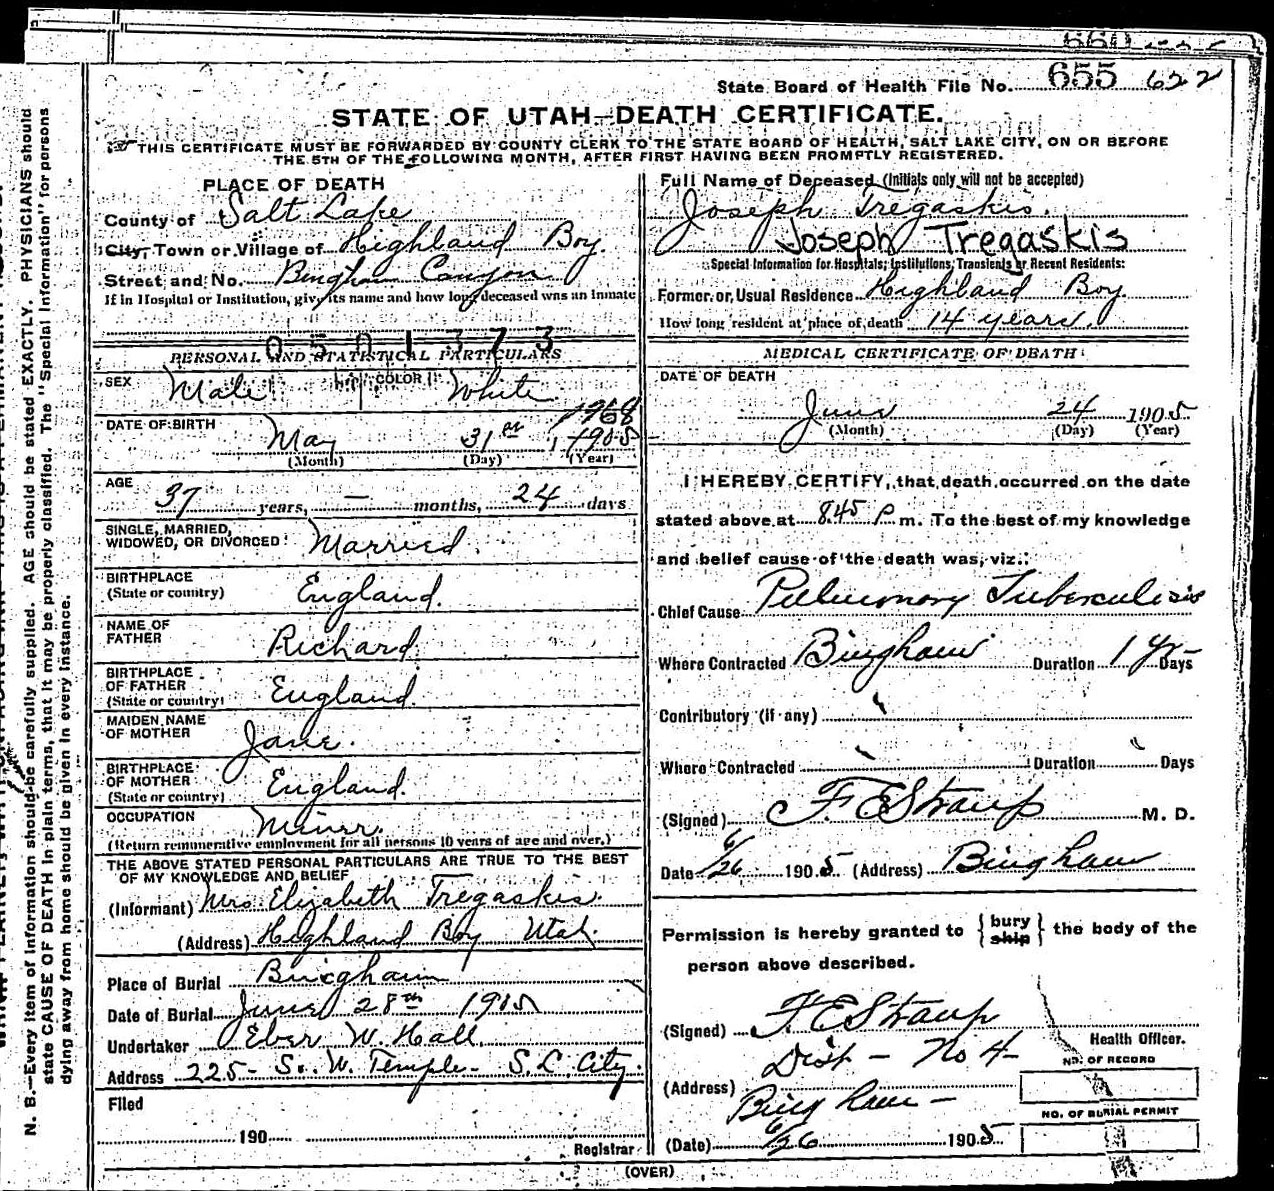 State Board of Health File No. 655 622
STATE OF UTAH—DEATH CERTIFICATE.
THIS CERTIFICATE MUST BE FORWARDED BY COUNTY CLERK TO THE STATE BOARD OF HEALTH, SALT LAKE CITY, ON OR BEFORE
THE 5TH OF THE FOLLOWING MONTH, AFTER FIRST HAVING BEEN PROMPTLY REGISTERED.
PLACE OF DEATH
County of Salt Lake
City, Town or Village of Highland Boy.
Street and No. Bingham Canyon
If in Hospital or Institution, give its name and how long deceased was an inmate
0501373
PERSONAL AND STATISTICAL PARTICULARS
SEX Male COLOR White
1868
DATE OF BIRTH May 31st 1905
(Month) (Day) (Year)
AGE
37 years, — months, 24 days
SINGLE, MARRIED,
WIDOWED, OR DIVORCED Married.
BIRTHPLACE
(State or country) England.
NAME OF
FATHER Richard
BIRTHPLACE
OF FATHER
(State or country) England.
MAIDEN NAME
OF MOTHER Jane.
BIRTHPLACE
OF MOTHER
(State or country) England.
OCCUPATION Miner.
(Return remunerative employment for all persons 10 years of age and over.)
THE ABOVE STATED PERSONAL PARTICULARS ARE TRUE TO THE BEST
OF MY KNOWLEDGE AND BELIEF
(Informant) Mrs Elizabeth Tregaskis.
(Address) Highland Boy Utah.
Place of Burial Bingham
Date of Burial June 28th 1905
Undertaker Eber W. Hall.
Address 225- So. W. Temple- S.L. City.
Filed
190
Registrar
Full Name of Deceased (Initials only will not be accepted)
Joseph Tregaskis.
Joseph Tregaskis
Special Information for Hospitals, Institutions, Transients or Recent Residents:
Former or Usual Residence Highland Boy
How long resident at place of death 14 years.
MEDICAL CERTIFICATE OF DEATH
DATE OF DEATH
June 24 1905
(Month) (Day) (Year)
I HEREBY CERTIFY, that death occurred on the date
stated above at 8.45 P m. To the best of my knowledge
and belief cause of the death was, viz.:
Chief Cause Pulmonary Tuberculosis
Where Contracted Bingham Duration 1 yr- Days
Contributory (if any)
Where Contracted Duration Days
(Signed) F. E Straup M. D.
Date 6/26 1905 (Address) Bingham
Permission is hereby granted to { bury ship } the body of the
person above described.
(Signed) F. E Straup
Health Officer.
Dist - No 4-
(Address) Bingham -
NO. OF RECORD
NO. OF BURIAL PERMIT
(Date) 6/26 1905
(OVER)
N. B.—Every item of information should be carefully supplied. AGE should be stated EXACTLY. PHYSICIANS should
state CAUSE OF DEATH in plain terms, that it may be properly classified. The "Special Information" for persons
dying away from home should be given in every instance.